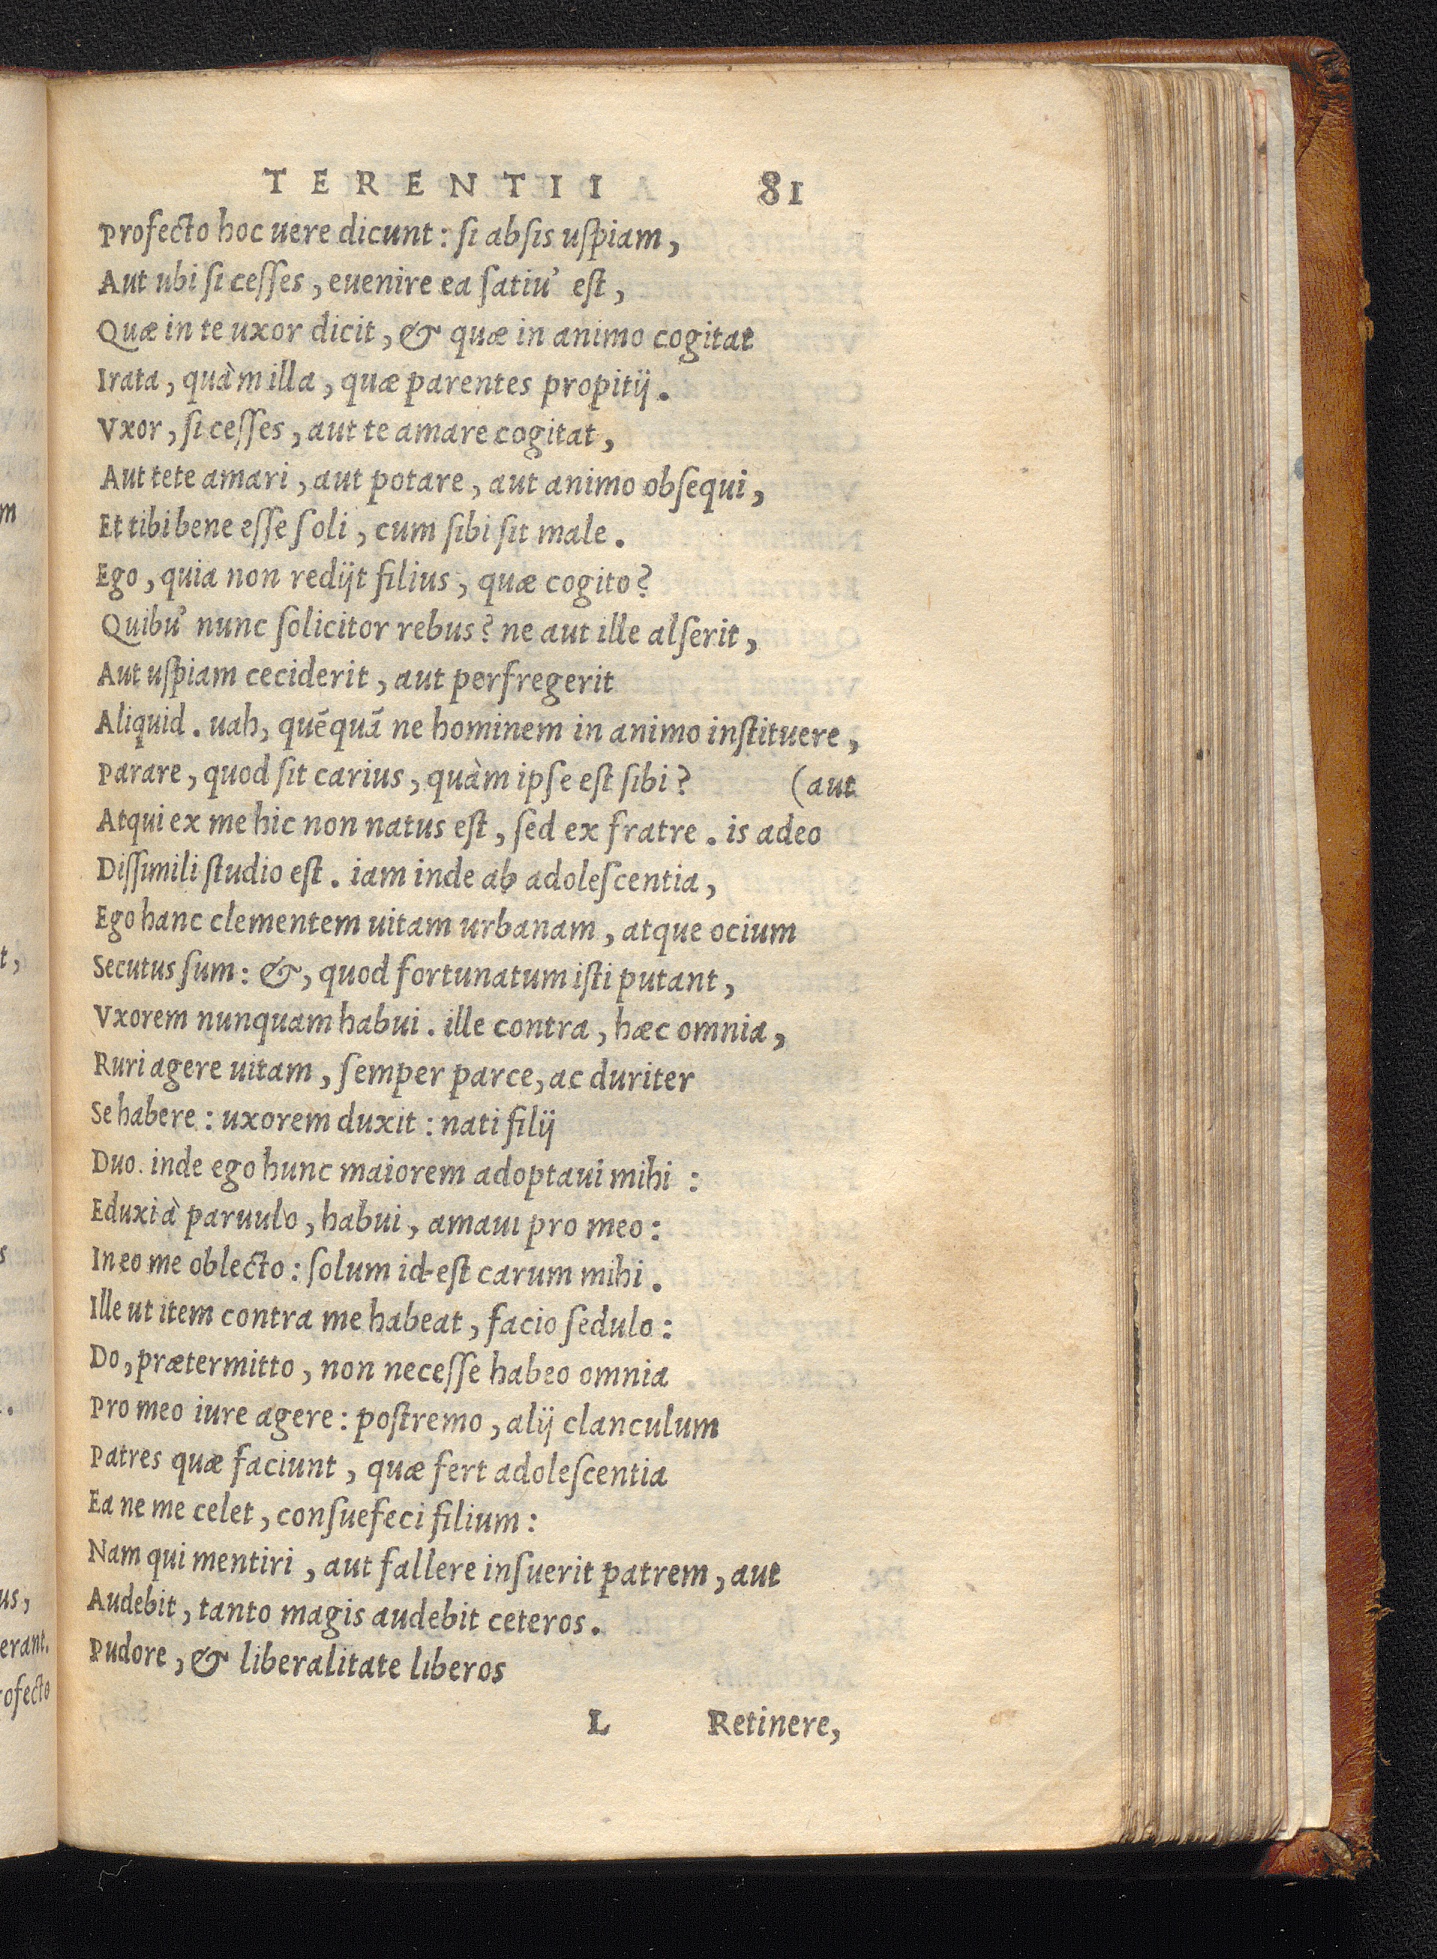 TERENTII 81
Profecto hoc uere dicunt: si absis uspiam,
Aut ubi si cesses, euenire ea satiu' est,
Quæ in te uxor dicit, & quæ in animo cogitat
Irata, quàm illa, quæ parentes propitij.
Vxor, si cesses, aut te amare cogitat,
Aut tete amari, aut potare, aut animo obsequi,
Et tibi bene esse soli, cum sibi sit male.
Ego, quia non redijt filius, quæ cogito?
Quibu' nunc solicitor rebus? ne aut ille alserit,
Aut uspiam ceciderit, aut perfregerit
Aliquid. uah, quẽquã ne hominem in animo instituere,
Parare, quod sit carius, quàm ipse est sibi? (aut
Atqui ex me hic non natus est, sed ex fratre. is adeo
Dissimili studio est. iam inde ab adolescentia,
Ego hanc clementem uitam urbanam, atque ocium
Secutus sum: &, quod fortunatum isti putant,
Vxorem nunquam habui. ille contra, hæc omnia,
Ruri agere uitam, semper parce, ac duriter
Se habere: uxorem duxit: nati filij
Duo. inde ego hunc maiorem adoptaui mihi:
Eduxi à paruulo, habui, amaui pro meo:
In eo me oblecto: solum id est carum mihi.
Ille ut item contra me habeat, facio sedulo:
Do, prætermitto, non necesse habeo omnia
Pro meo iure agere: postremo, alij clanculum
Patres quæ faciunt, quæ fert adolescentia
Ea ne me celet, consuefeci filium:
Nam qui mentiri, aut fallere insuerit patrem, aut
Audebit, tanto magis audebit ceteros.
Pudore, & liberalitate liberos
L Retinere,